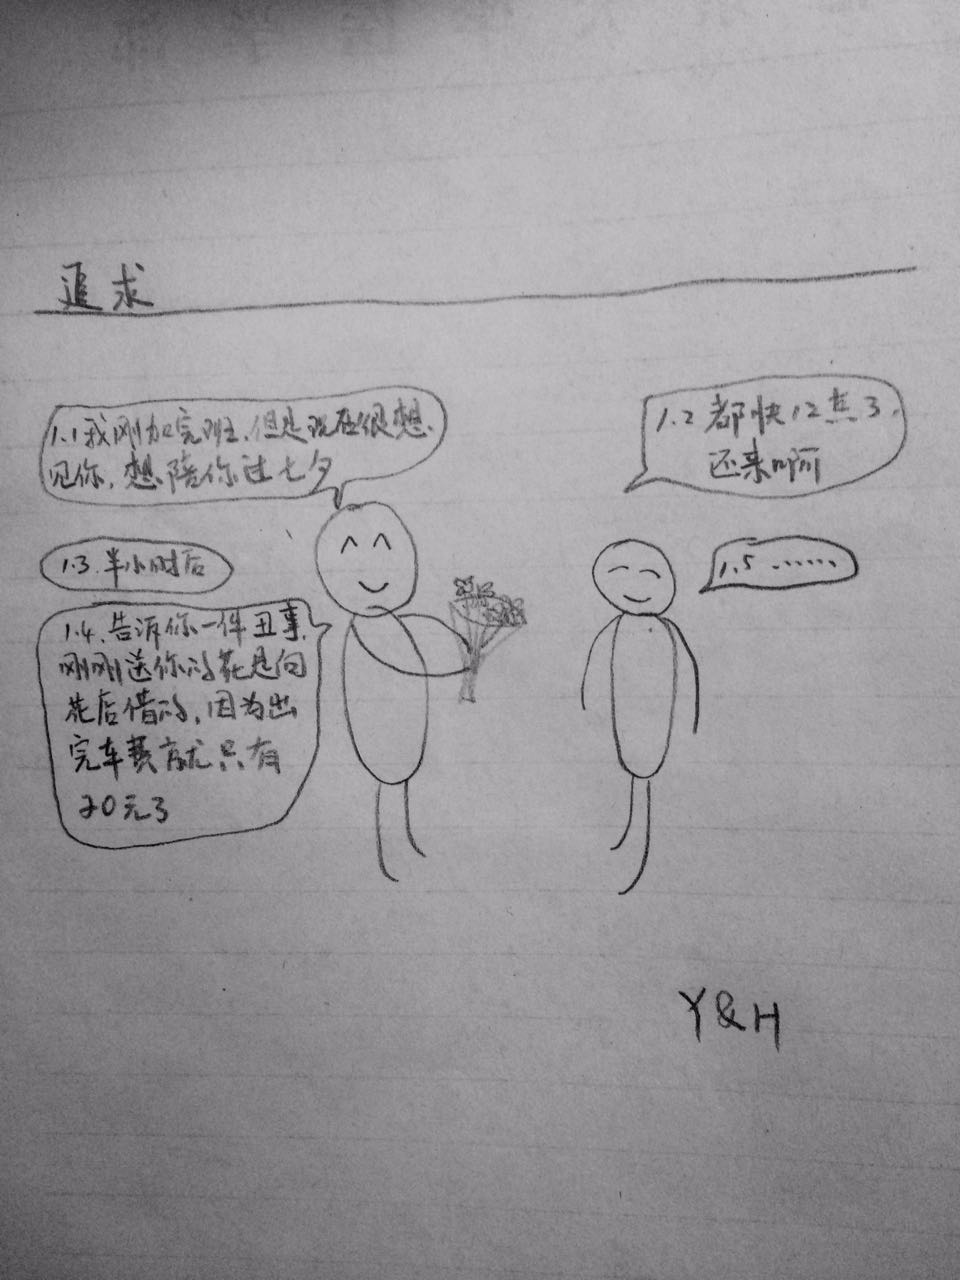 追求
1.1我刚加完班,但是现在很想
见你,想陪你过七夕
1.2 都快12点了,
还来啊
1.3.半小时后
1.4.告诉你一件丑事,
刚刚送你的花是向
花店借的,因为出
完车费就只有
20元了
1.5 ……
Y&H